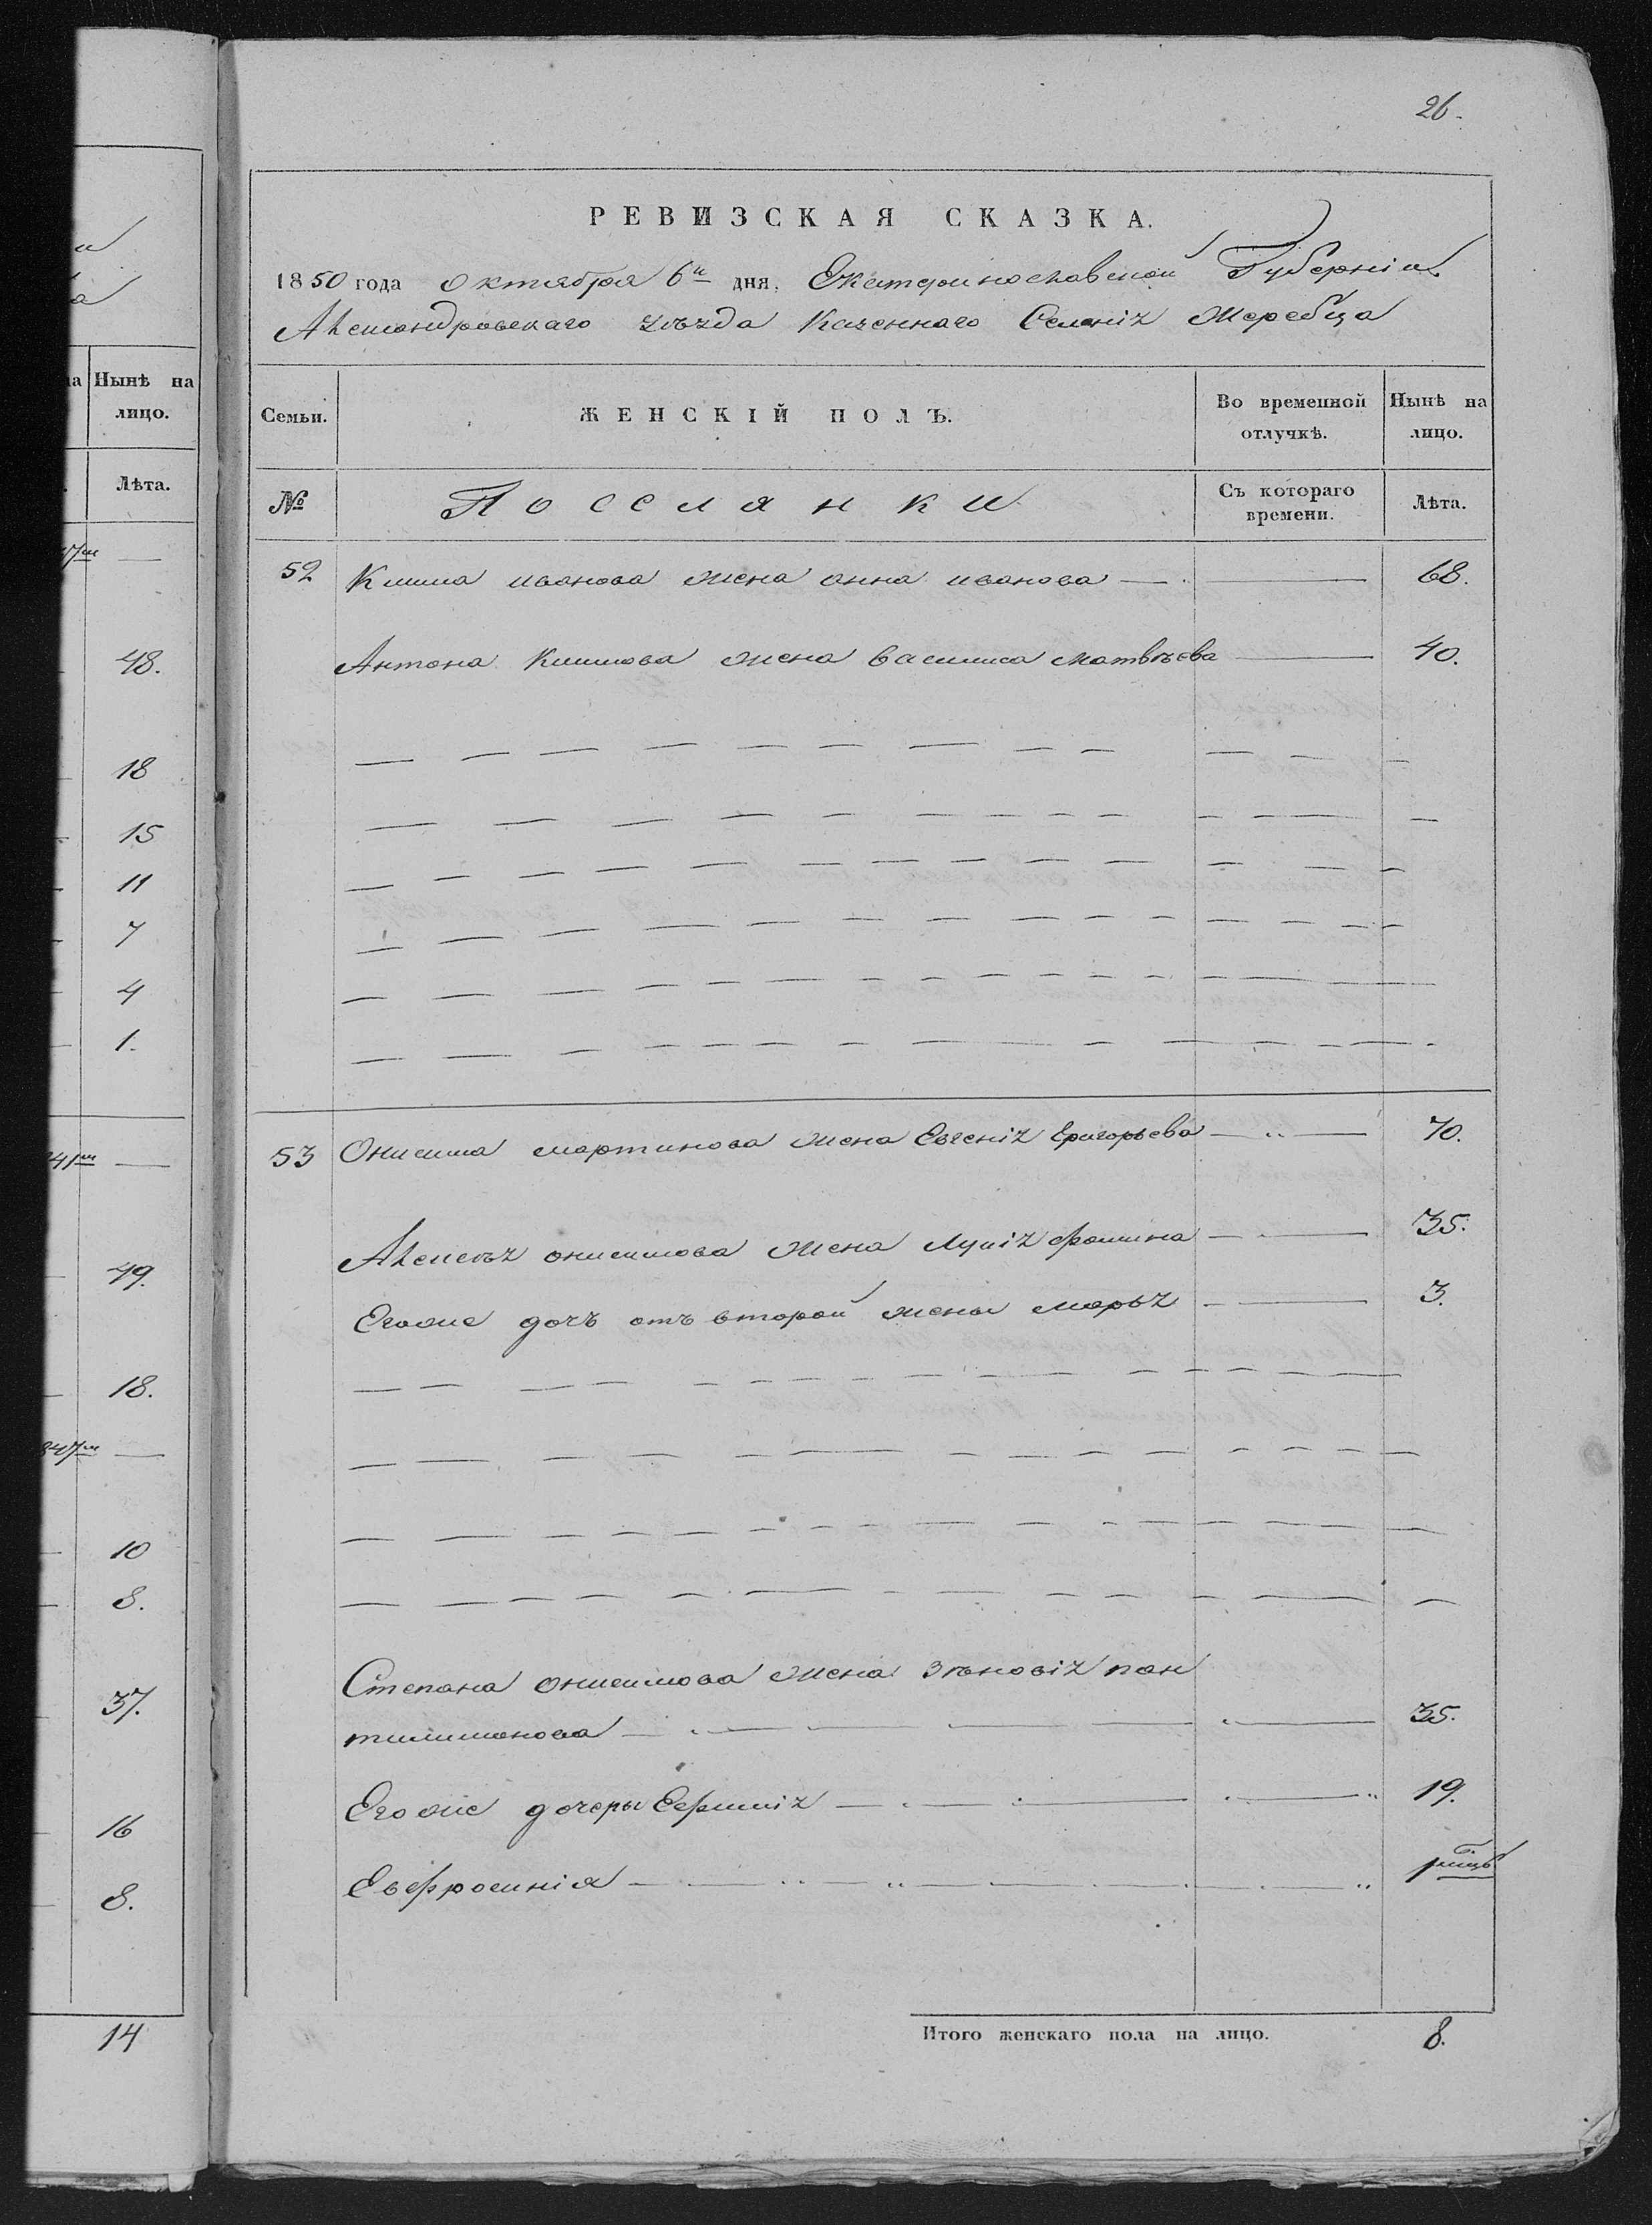 а
Нынѣ на
лицо.
Лѣта.
48.
18
15
11
7
4
1.
49.
18.
10
8.
37.
16
8.
14
26.
РЕВИЗСКАЯ СКАЗКА.
1850 года Октября 6го дня, Екатеринославской Губерніи
Александровскаго уѣзда Казеннаго Селенія Жеребца
Семьи.
ЖЕНСКІЙ ПОЛЪ.
Во временной
отлучкѣ.
Нынѣ на
лицо.
№
Поселянки
Съ котораго
времени.
Лѣта.
52 Клима иванова жена анна иванова — 68.
Антона климова жена василиса матвѣева — 40.
53 Онисима мартинова жена Евгенія григорьева — 70.
Алексѣя онисимова жена Лукія фомина — 35.
Егоже дочь отъ второй жены марья — 3.
Степана онисимова жена зѣновія пан
тилимонова — 35.
Егоже дочери Ефимія — 19.
Евфросинія — 1
Итого женскаго пола на лицо. 8.